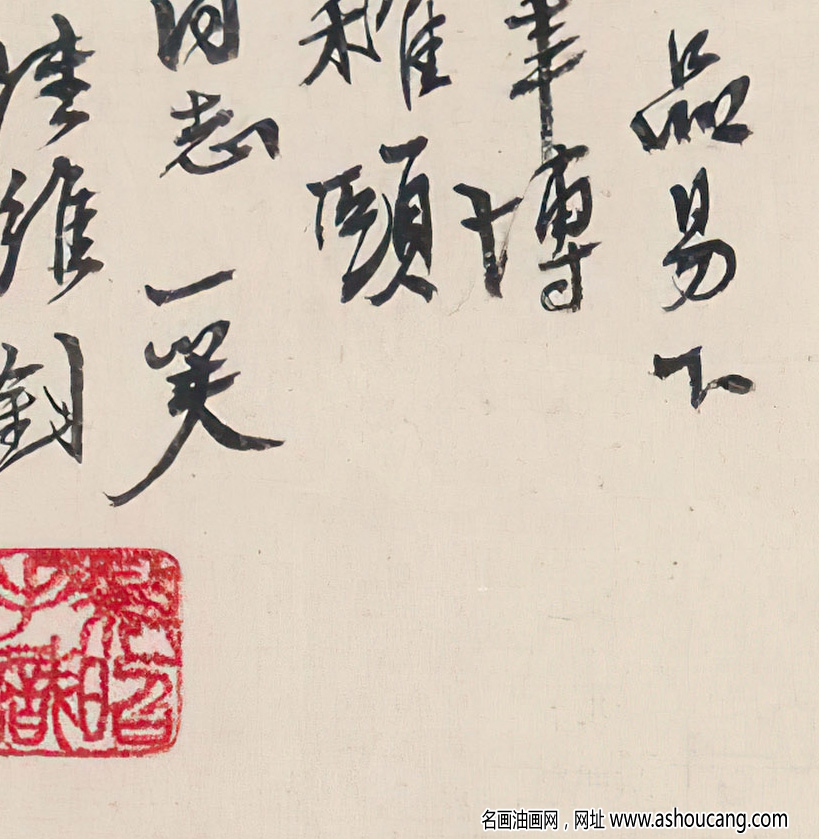 品易下
聿博
稚頤
同志一笑
陸維釗
名画油画网，网址 www.ashoucang.com